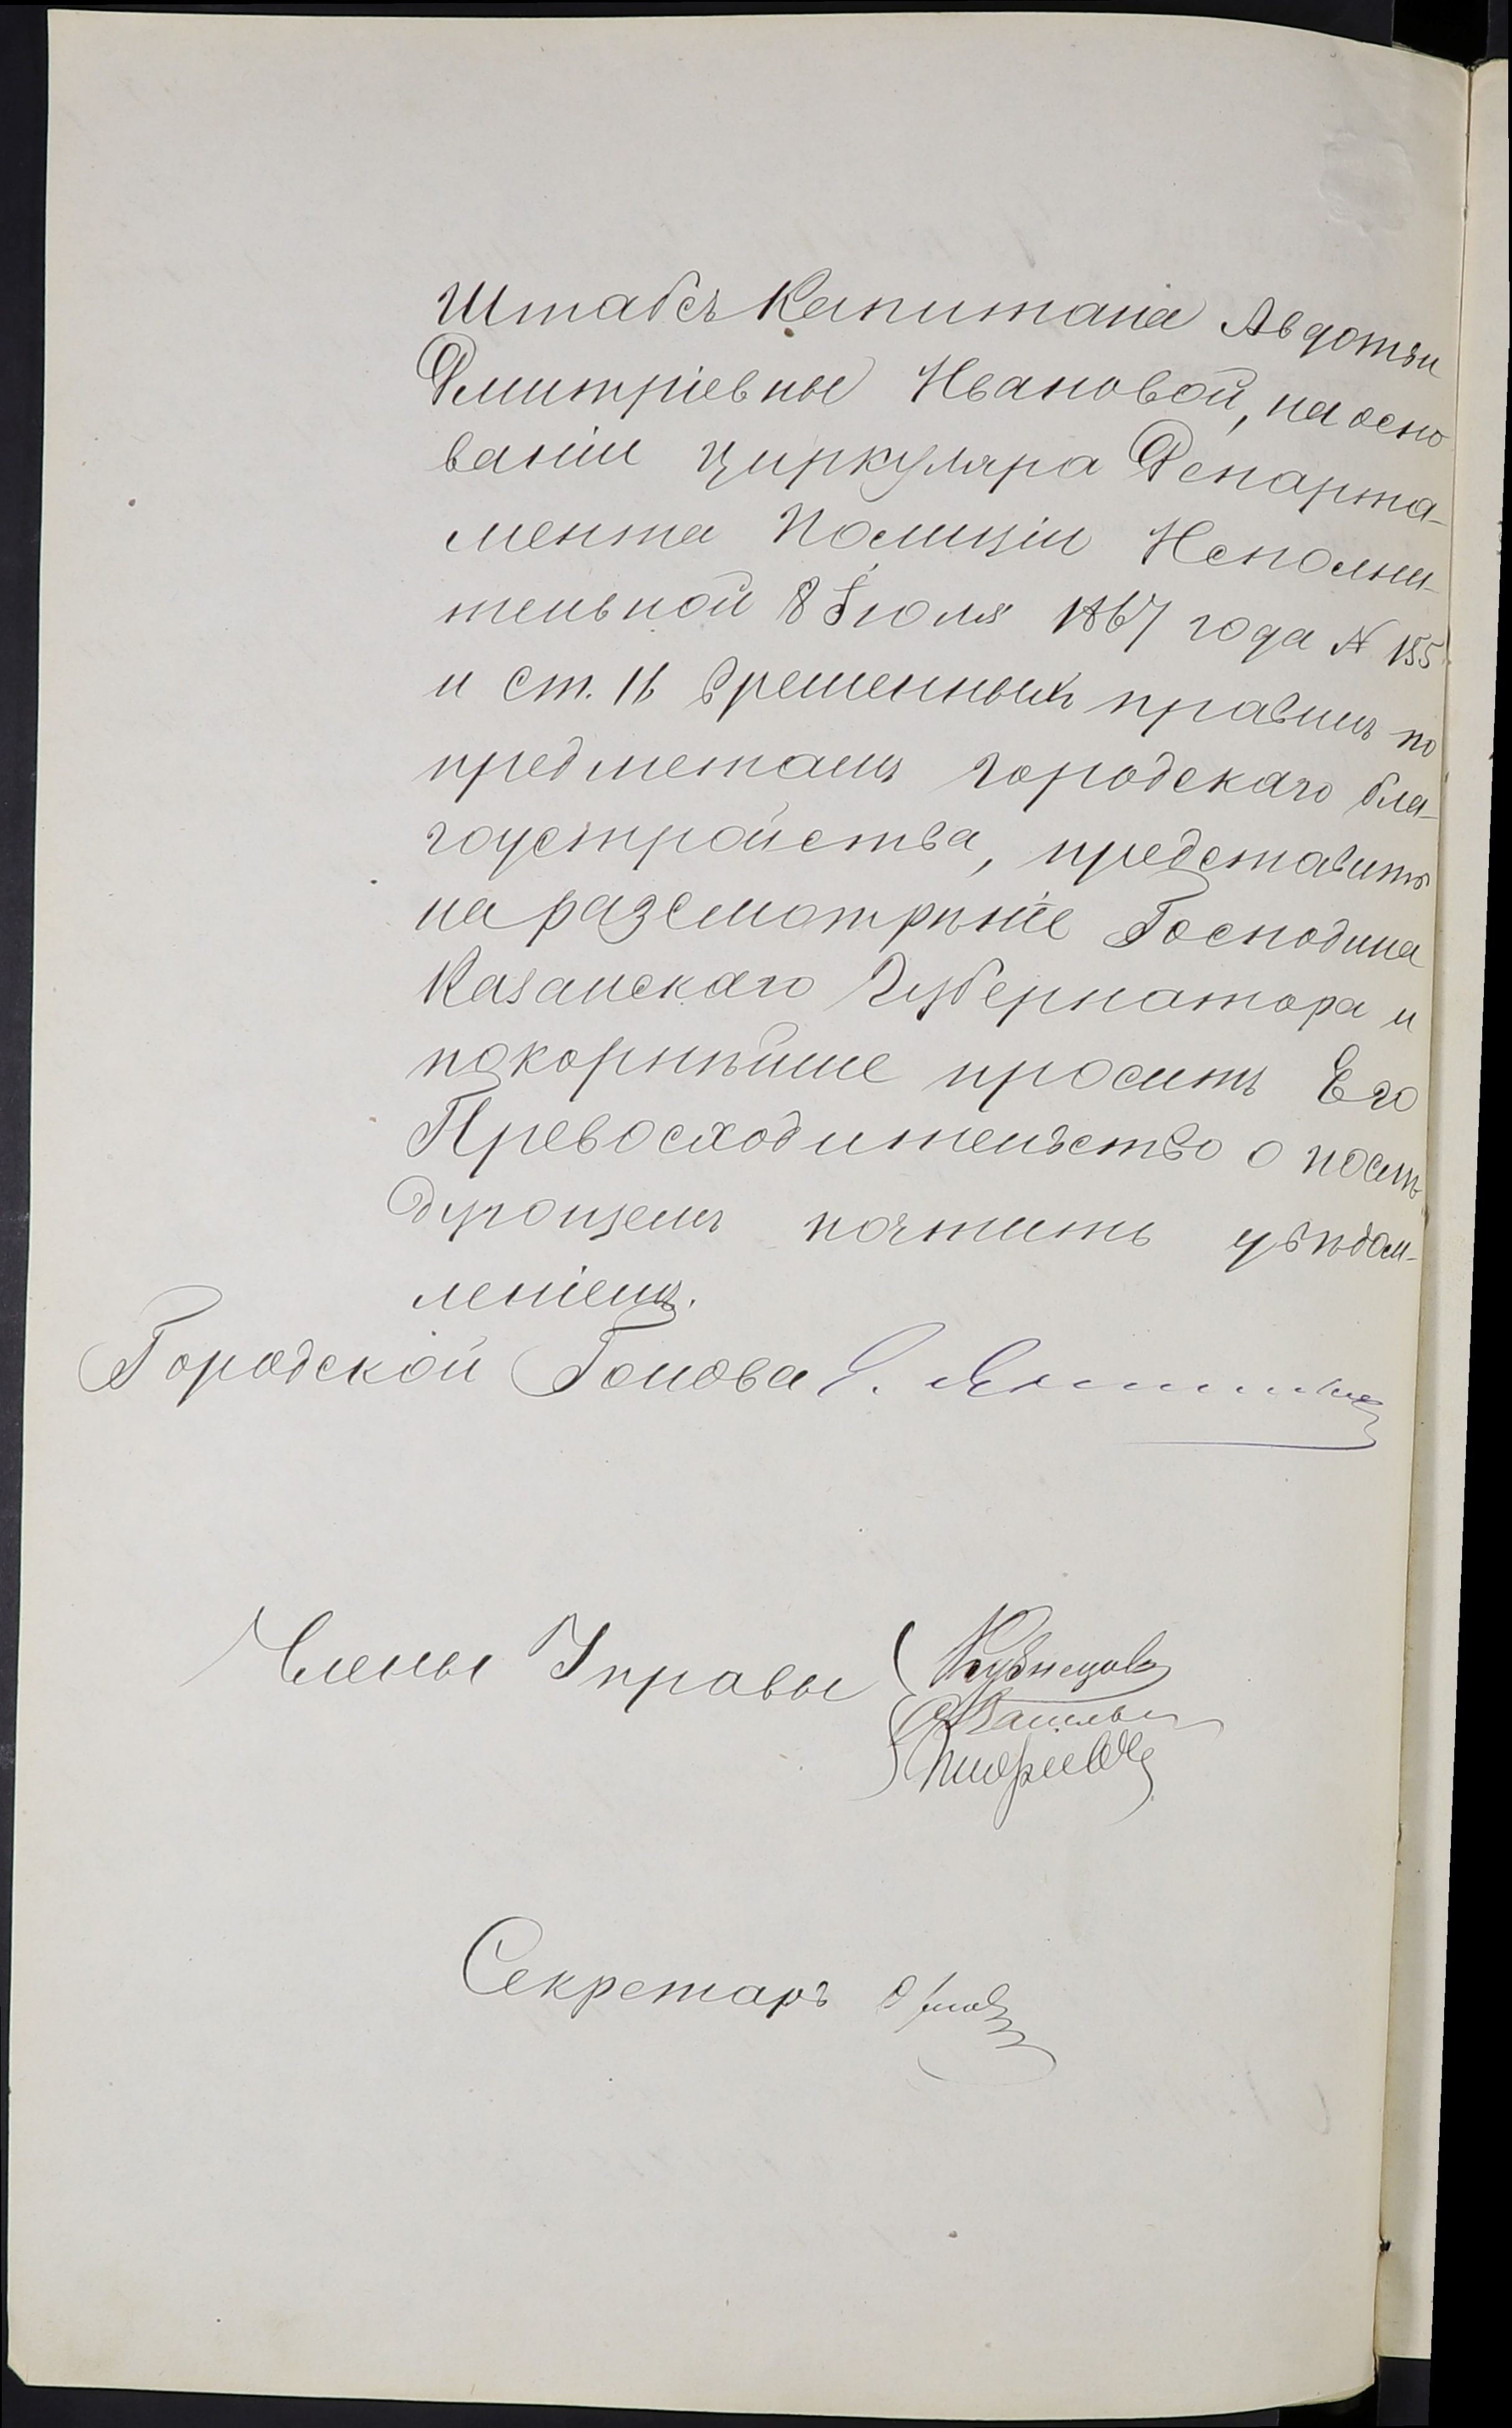 Штабсъ Капитана Авдотьи
Дмитріевны Ивановой, на осно
ваніи циркуляра Департа-
мента Полиціи Исполни-
тельной 8 Іюля 1867 года № 155
и ст. 16 временныхъ правилъ по
предметамъ городскаго бла-
гоустройства, представить
на разсмотрѣніе Господина
Казанскаго Губернатора и
покорнѣйше просить Его
Превосходительство о послѣ
дующемъ почтить увѣдом-
леніемъ.
Городской Голова
Члены Управы Кузнецовъ
Секретарь